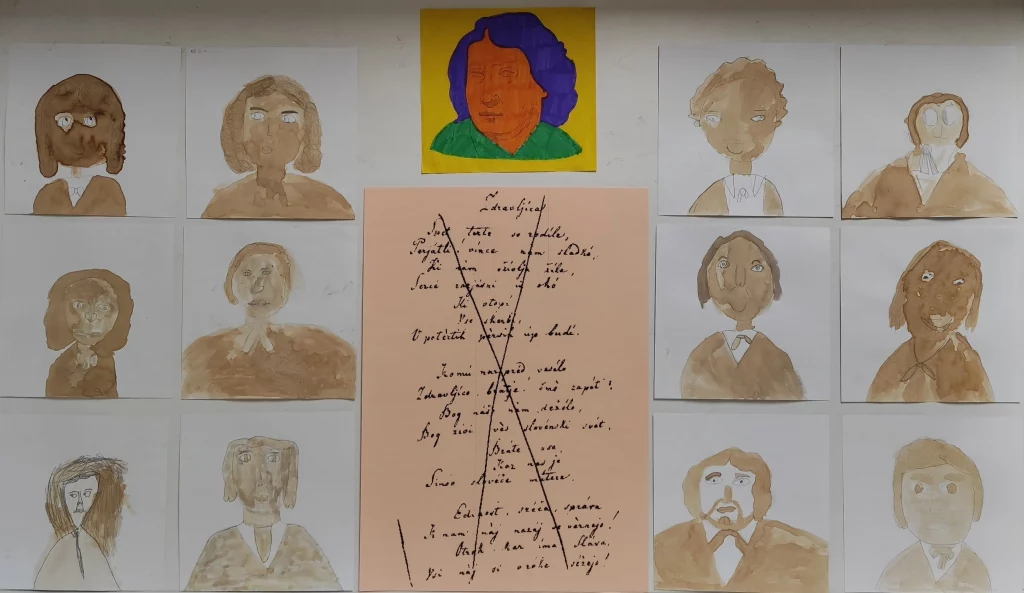 Zdravljica
Spet terte so rodile,
Perjatli vince nam sladkó,
Ki nam oživlja žile,
Sercé razjasni in okó
Ki utopi
Vse skerbi,
V potertih persih up budi.
Komú narpred vesélo
Zdravljico, bratje! čmo zapét'!
Bog naši nam deželo,
Bog živi ves slovénski svét,
Brate vse,
Kar nas je
Sinov slovéče matere.
Edinost, sréča, správa
K nam naj nazaj se vernejo!
Otrók, kar ima Slava,
Vsi naj si v roke séžejo!